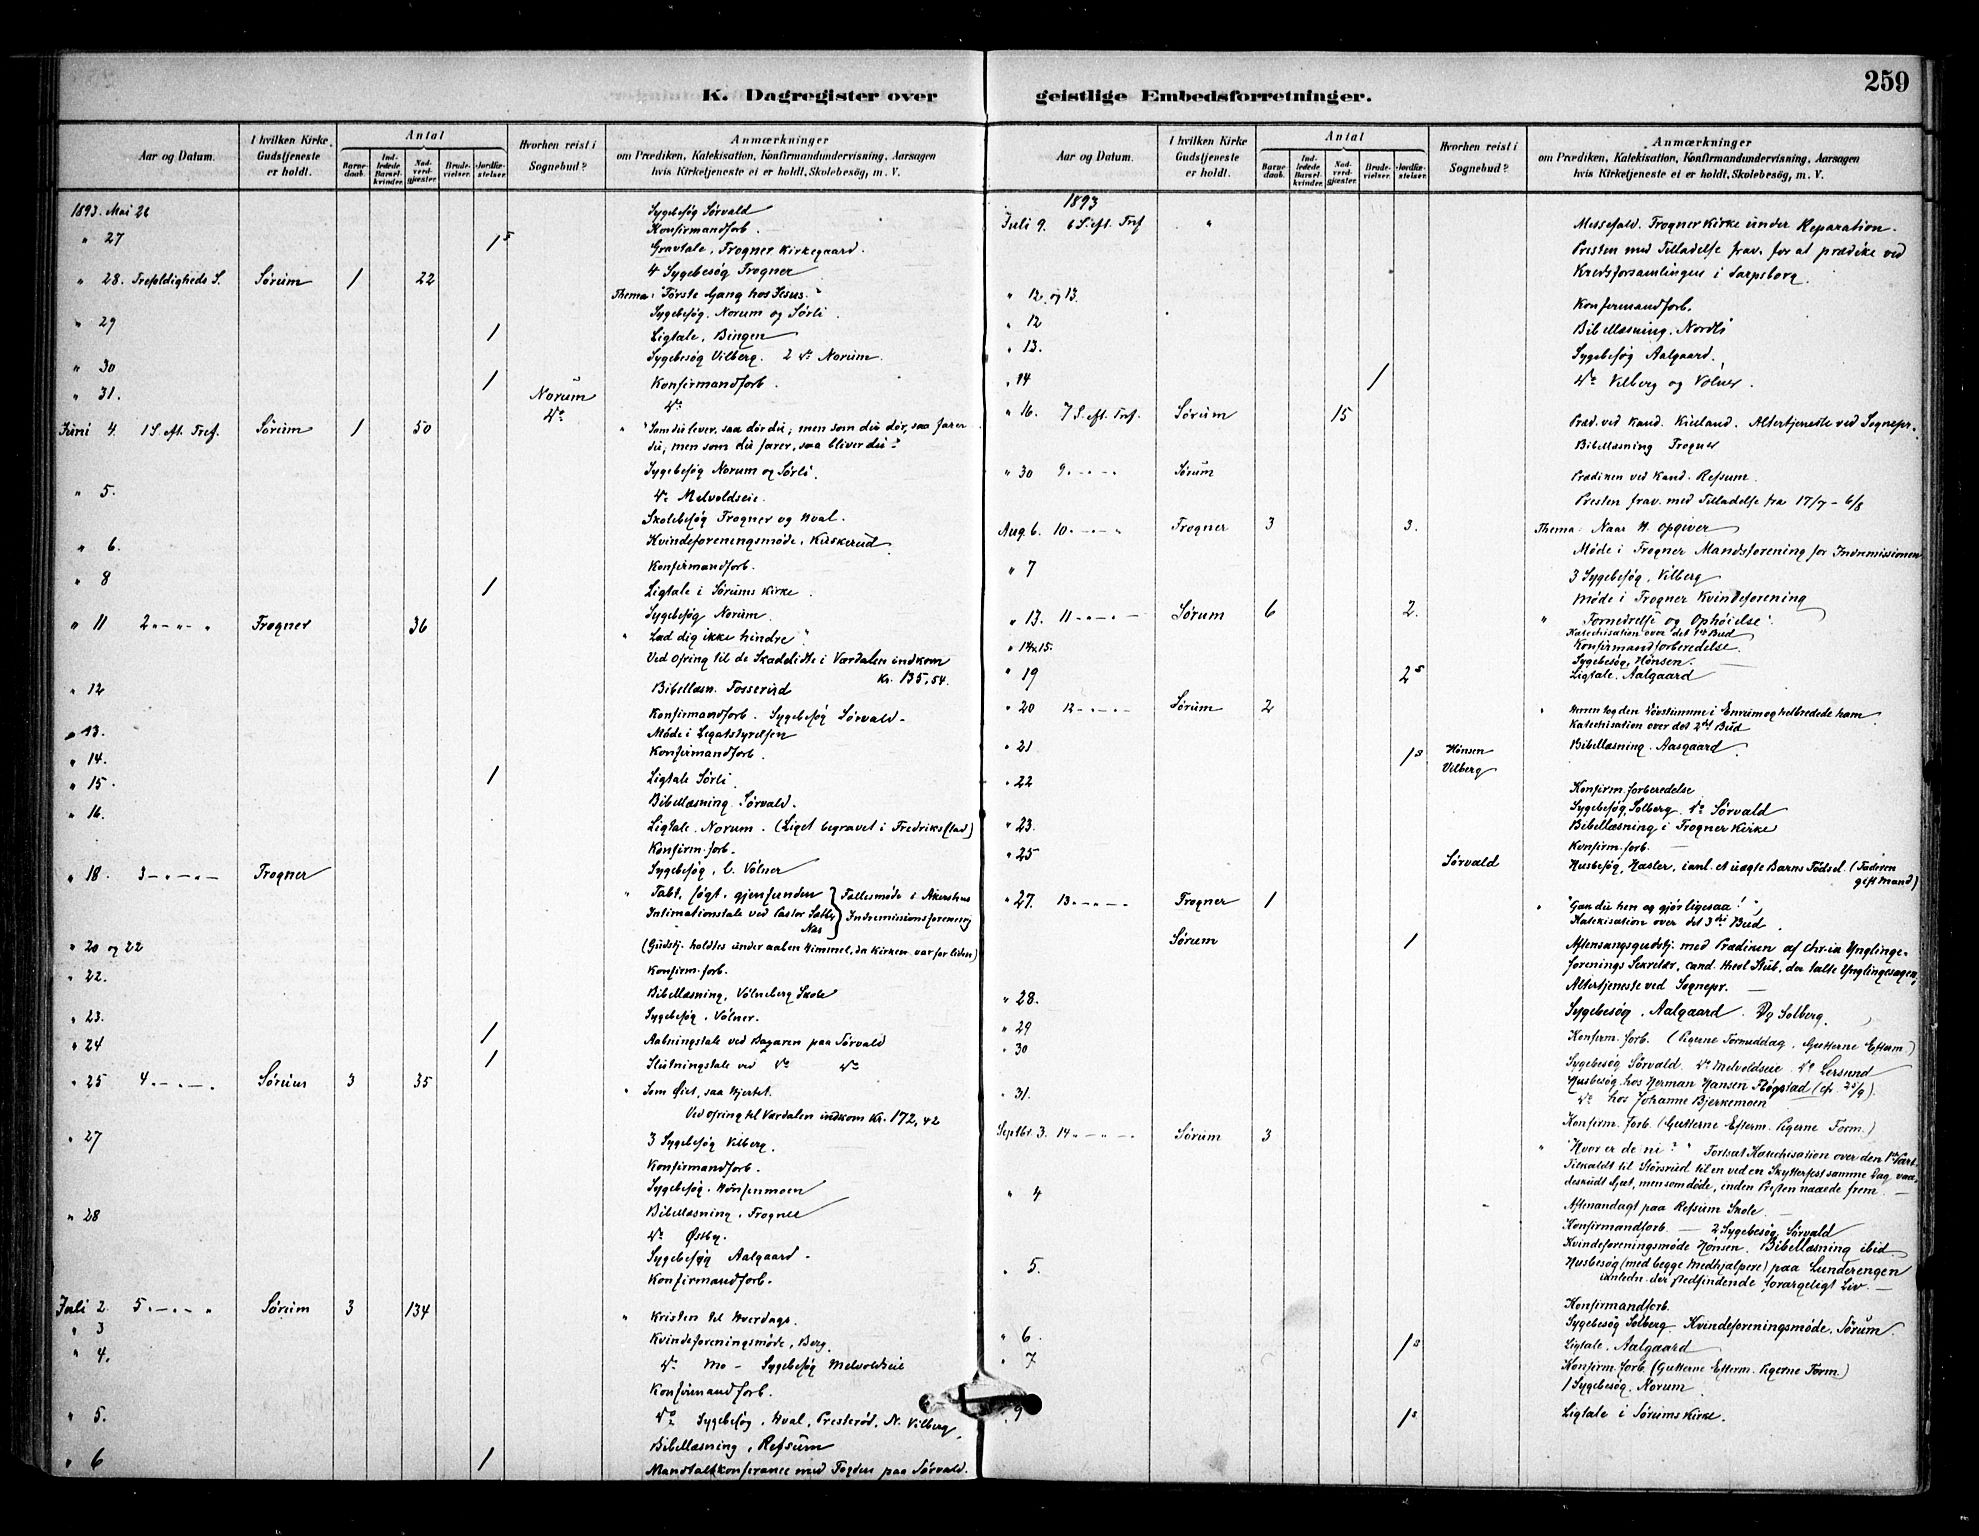 259
K. Dagregister over geistlige Embedsforretninger.
Aar og Datum.
I hvilken Kirke Gudstjeneste er holdt.
Antal
Barnedaab.
Indledede Barselkvinder.
Nadverdgjæster.
Brudevielser.
Jordfæstelser.
Hvorhen reist i Sognebud?
Anmærkninger
om Prædiken, Katekisation, Konfirmandundervisning, Aarsagen
hvis Kirketjeneste ei er holdt, Skolebesøg, m. V.
1893. Mai 26
Sygebesøg Sørvald
Konfirmandforb.
" 27 1 s
Gravtale, Frogner Kirkegaard.
4 Sygebesøg Frogner
" 28. Trefoldigheds S. Sørum 1 22
Thema: "Første Gang hos Jesus."
Sygebesøg. Norum og Sørli.
" 29 1
Ligtale, Bingen
Sygebesøg Vilberg. 2 do Norum.
" 30
Konfirmandforb.
1
" 31. Norum
do
do
Juni 4. 1 S. eft. Tref. Sørum 1 50 " "Som du lever, saa dør du; men som du dør, saa farer
du; men som du farer, saa bliver du"
Sygebesøg Norum og Sørli.
" 5. do Melvoldseie.
Skolebesøg Frogner og Hval.
" 6. Kvindeforeningsmøde, Kuskerud
Konfirmandforb.
" 8 1 Ligtale i Sørums Kirke.
Sygebesøg Norum.
" 11 2 - " - " Frogner 36 " Lad dig ikke hindre"
Ved ofring til de Skadelidte i Værdalen indkom
Kr. 135,54.
" 12 Bibellæsn. Fosserud
Konfirmandforb. Sygebesøg Sørvald -
" 13. Møde i Legatstyrelsen
" 14. Konfirmandforb.
" 15 1 Ligtale Sørli.
Bibellæsning Sørvald.
" 16. Ligtale. Norum. (Liget begravet i Fredriksstad)
Konfirm. forb.
Sygebesøg, Vølner
" 18. 3 - " - " - Frogner " Tabt, søgt, gjenfunden } Fællesmøde i Akershus
Intimationstale ved Pastor Næs } Indremissionsforening
(Gudstj. holdtes under aaben Himmel, da Kirken var for liden)
" 20 og 22 Konfirm. forb.
" 22. Bibellæsning, Vølneberg Skole
Sygebesøg, Vølner.
" 23. 1 Aabningstale ved Bazaren paa Sørvald
" 24 1 Slutningstale ved do do
" 25 4 - " - " - Sørum 3 35 " Som Øiet, saa Hjertet.
Ved ofring til Værdalen indkom Kr. 172,42
" 27 3 Sygebesøg Vilberg.
Konfirmandforb.
Sygebesøg. Hønsenmoen
" 28 Bibellæsning, Frogner
do Østby.
Sygebesøg Aalgaard.
Konfirmandforb.
Juli 2. 5 - " - " " Sørum 3 134 " Kristen til Hverdags.
" 3 Kvindeforeningsmøde, Berg.
" 4. do Mo - Sygebesøg Melvoldseie
Konfirmandforb.
" 5. do Sygebesøg, Hval, Presterød, N. Vilberg.
Bibellæsning, Refsum
" 6 1 Mandtalskonferance med Fogden paa Sørvald.
Aar og Datum.
I hvilken Kirke Gudstjeneste er holdt.
Antal
Barnedaab.
Indledede Barselkvinder.
Nadverdgjæster.
Brudevielser.
Jordfæstelser.
Hvorhen reist i Sognebud?
Anmærkninger
om Prædiken, Katekisation, Konfirmandundervisning, Aarsagen
hvis Kirketjeneste ei er holdt, Skolebesøg, m. V.
1893
Juli 9. 6 S. eft. Tref " Messefald. Frogner Kirke under Reparation.
Presten med Tilladelse frav. for at prædike ved
Kredsforsamlingen i Sarpsborg.
" 12 og 13. Konfirmandforb.
" 12 Bibellæsning. Nordli
" 13. Sygebesøg Aalgaard.
" 14 1 do Vilberg og Vølner.
" 16. 7 S. eft. Tref. Sørum 15 Præd. ved Kand. Kielland. Altertjeneste ved Sognepr.
Bibellæsning Frogner
" 30 9 - " - " - Sørum Prædiken ved Kand. Refsum.
Presten frav. med Tilladelse fra 17/7 - 6/8
Aug. 6. 10 - " - " Frogner 3 3. Thema: Naar H. opgiver
Møde i Frogner Mandsforening for Indremissionen
" 7 3 Sygebesøg, Vilberg
Møde i Frogner Kvindeforening
" 13. 11 - " - " - Sørum 6 2. " Fornedrelse og Ophøielse".
Katechisation over det 1ste Bud
" 14 & 15. Konfirmandforberedelse.
Sygebesøg, Hønsen.
" 19 2 s Ligtale. Aalgaard
" 20 12 - " - " - Sørum 2 " Herren tog den Døvstumme i Enrum og helbredede ham
Katechisation over det 2det Bud
" 21 1 s Hønsen Bibellæsning. Aasgaard
Vilberg
" 22 Konfirm. forberedelse
Sygebesøg Solberg. do Sørvald
" 23. Bibellæsning i Frogner Kirke
Konfirm. forb.
" 25 Sørvald Husbesøg, Hasler, i anl. et uægte Barns Fødsel. (Faderen
gift Mand)
" 27. 13 - " - " - Frogner 1 " "Gaa du hen og gjør ligesaa!",
Katekisation over det 3die Bud
Sørum 1 Aftensangsgudstj. med Prædiken af
forenings Sekretær, cand. theol Stub, der talte Ynglingesagen,
Altertjeneste ved Sognepr. -
" 28. Sygebesøg. Aalgaard. Do Solberg.
" 29 Konfirm. forb. (Pigerne Formiddag, Gutterne Efterm.)
" 30 Sygebesøg Sørvald. do Melvoldseie do Lersund
Husbesøg hos Herman Hansen
" 31. do hos Johanne Bjerkemoen
Konfirm. forb. (Gutterne Efterm. Pigerne Form.)
Septbr. 3. 14 - " - " - Sørum 3 " "Hvor er de ni?" Fortsat Katechisation over den 1ste Part.
Tilkaldt til Størsrud til en ved en Skytterfest samme Dag vaa-
deskudt Gjæst, men som døde, inden Presten naaede frem. -
" 4 Aftenandagt paa Refsum Skole.
Konfirmandforb. - 2 Sygebesøg Sørvald
Kvindeforeningsmøde Hønsen. Bibellæsning ibid.
" 5. Husbesøg (med begge Medhjælpere) paa Lunderengen
i anledn. der stedfindende forargeligt Liv. -
Konfirmandforb.
Sygebesøg Solberg. Kvindeforeningsmøde, Sørum.
" 6. 1 s Ligtale. Aalgaard
" 7. Konfirm. forb. (Gutterne Efterm. Pigerne Form.)
1 Sygebesøg. Norum
" 9 1 s Ligtale i Sørums Kirke.